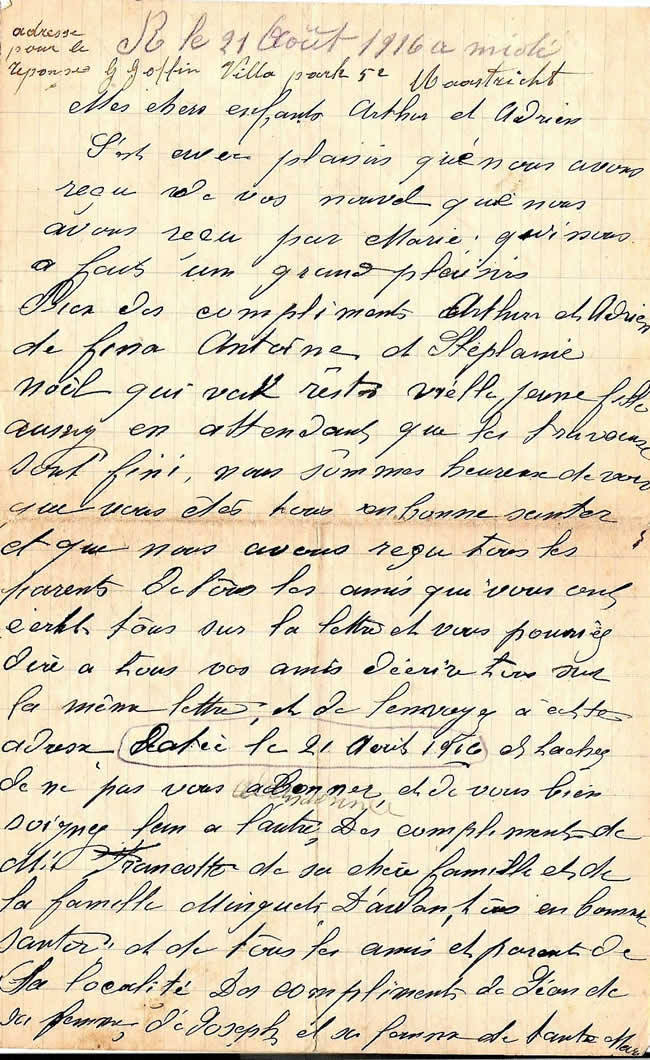 adresse
pour le
reponse
R le 21 Août 1916 a midi
G Goffin Villa park 52 Maastricht
Mes chers enfants Arthur et Adrien
C'est avec plaisirs que nous avons
reçu de vos nouvel que nous
avons reçu par Marie. qui nous
a fait un grand plaisirs
Bien des compliments Arthur et Adrien
de fina Antoine et Stéplanie
noël qui rest vielle jeune fille
en attendant que les
sont fini, nous sommes heureux de voir
que vous êtes tous en bonne santer
et que nous avons reçu tous les
parents De tous les amis qui vous ont
écrit tous sur la lettre et vous pouriez
dire a tous vos amis d'écrire tous sur
la même lettre, et de l'envoyez a cette
adresse Datée le 21 Août 1916 et tachez
de ne pas vous abandonner, et de vous bien
soignez l'un a l'autre, Des compliments de
Mr Francotte de sa chère famille et de
la famille Minguet tous en bonne
santer et de tous les amis et parents de
la localité Des compliments de Jéan de
sa femme, de Joseph et sa femme de tante Marie